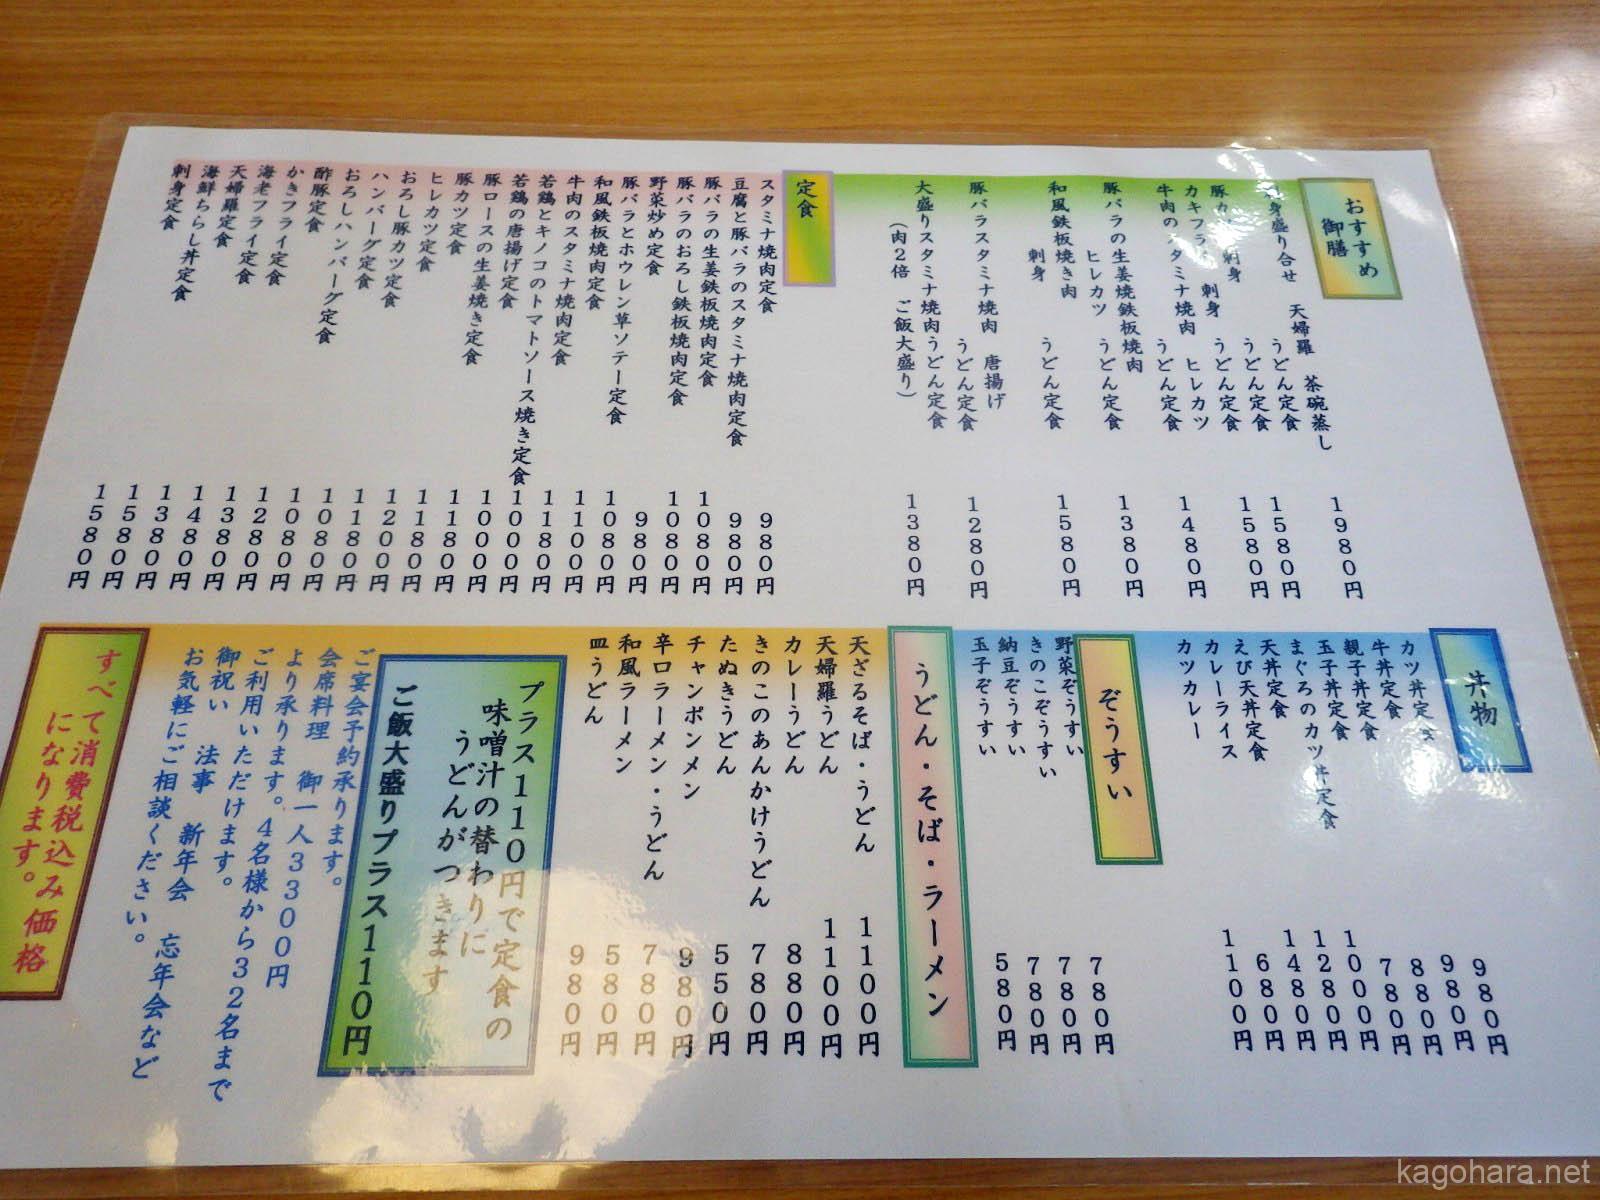 おすすめ御膳
刺身盛り合せ 天婦羅 茶碗蒸し
うどん定食 1980円
豚カツ 刺身 うどん定食 1580円
カキフライ 刺身 うどん定食 1580円
牛肉のスタミナ焼肉 ヒレカツ
うどん定食 1480円
豚バラの生姜焼鉄板焼肉
ヒレカツ うどん定食 1380円
和風鉄板焼き肉
刺身 うどん定食 1580円
豚バラスタミナ焼肉 唐揚げ
うどん定食 1280円
大盛りスタミナ焼肉うどん定食 1380円
(肉2倍 ご飯大盛り)
定食
スタミナ焼肉定食 980円
豆腐と豚バラのスタミナ焼肉定食 980円
豚バラの生姜鉄板焼肉定食 1080円
豚バラのおろし鉄板焼肉定食 1080円
野菜炒め定食 980円
豚バラとホウレン草ソテー定食 1080円
和風鉄板焼肉定食 1100円
牛肉のスタミナ焼肉定食 1180円
若鶏とキノコのトマトソース焼き定食 1000円
若鶏の唐揚げ定食 1000円
豚ロースの生姜焼き定食 1180円
豚カツ定食 1180円
ヒレカツ定食 1200円
おろし豚カツ定食 1180円
ハンバーグ定食 1080円
おろしハンバーグ定食 1080円
酢豚定食 1280円
かきフライ定食 1380円
海老フライ定食 1480円
天婦羅定食 1380円
海鮮ちらし丼定食 1580円
刺身定食 1580円
丼物
カツ丼定食 980円
牛丼定食 980円
親子丼定食 880円
玉子丼定食 780円
まぐろのカツ丼定食 1000円
天丼定食 1280円
えび天丼定食 1480円
カレーライス 680円
カツカレー 1100円
ぞうすい
野菜ぞうすい 780円
きのこぞうすい 780円
納豆ぞうすい 780円
玉子ぞうすい 580円
うどん・そば・ラーメン
天ざるそば・うどん 1100円
天婦羅うどん 1100円
カレーうどん 880円
きのこのあんかけうどん 780円
たぬきうどん 550円
チャンポンメン 980円
辛口ラーメン・うどん 780円
和風ラーメン 580円
皿うどん 980円
プラス110円で定食の
味噌汁の替わりに
うどんがつきます
ご飯大盛りプラス110円
ご宴会予約承ります。
会席料理 御一人3300円
より承ります。
ご利用いただけます。4名様から32名まで
御祝い 法事 新年会 忘年会など
お気軽にご相談ください。
すべて消費税込み価格
になります。
kagohara.net